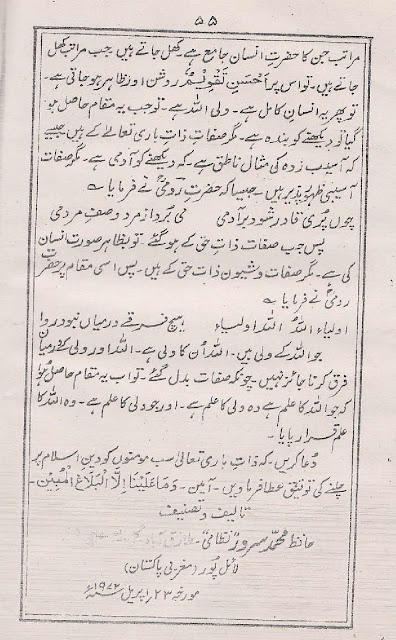 ۵۵
مراتب جن کا حضرتِ انسان جامع ہے۔ کھل جاتے ہیں جب مراتب کھل
جاتے ہیں۔ تو اس پر اَحْسَنِ تَقْوِیْمٌ روشن اور ظاہر ہو جاتی ہے۔
تو پھر یہ انسانِ کامل ہے۔ ولی اللہ ہے۔ تو جب یہ مقام حاصل ہو
گیا تو دیکھنے کو بندہ ہے۔ مگر صفات ذاتِ باری تعالےٰ کے ہیں جیسے
کہ آسیب زدہ کی مثال ناطق ہے کہ دیکھنے کو آدمی ہے۔ مگر صفات
آسیبی ظہور پذیر ہیں۔ جیسا کہ حضرتِ رومیؒ نے فرمایا ؎
چوں پری قادر شود بر آدمی می بُرداز مرد وصفِ مردمی
پس جب صفات ذاتِ حق کے ہو گئے تو بظاہر صورت انسان
کی ہے۔ مگر صفات و شیون ذاتِ حق کے ہیں۔ پس اسی مقام پر حضرت
رومیؒ نے فرمایا ؎
اولیاء اللہُ اللہ اولیاء ہیچ فرقے درمیاں نبود روا
جو اللہ کے ولی ہیں۔ اللہ اُن کا ولی ہے۔ اللہ اور ولی کے درمیان
فرق کرنا جائز نہیں۔ چونکہ صفات بدل گئے۔ تو اب یہ مقام حاصل ہوا
کہ جو اللہ کا علم ہے وہ ولی کا علم ہے۔ اور جو ولی کا علم ہے۔ وہ اللہ کا
علم قرار پایا۔
دُعا کریں۔ کہ ذاتِ باری تعالیٰ سب مومنوں کو دینِ اسلام پر
چلنے کی توفیق عطا فرماویں۔ آمین۔ وَمَا عَلَیْنَا اِلَّا الْبَلَاغُ الْمُبِیْن۔
تالیف و تصنیف
حافظ محمّد سرور نظامیؔ۔
لائل پُور (مغربی پاکستان)
مورخہ ۲۳؍ اپریل سنہ ۱۹۷۲ء